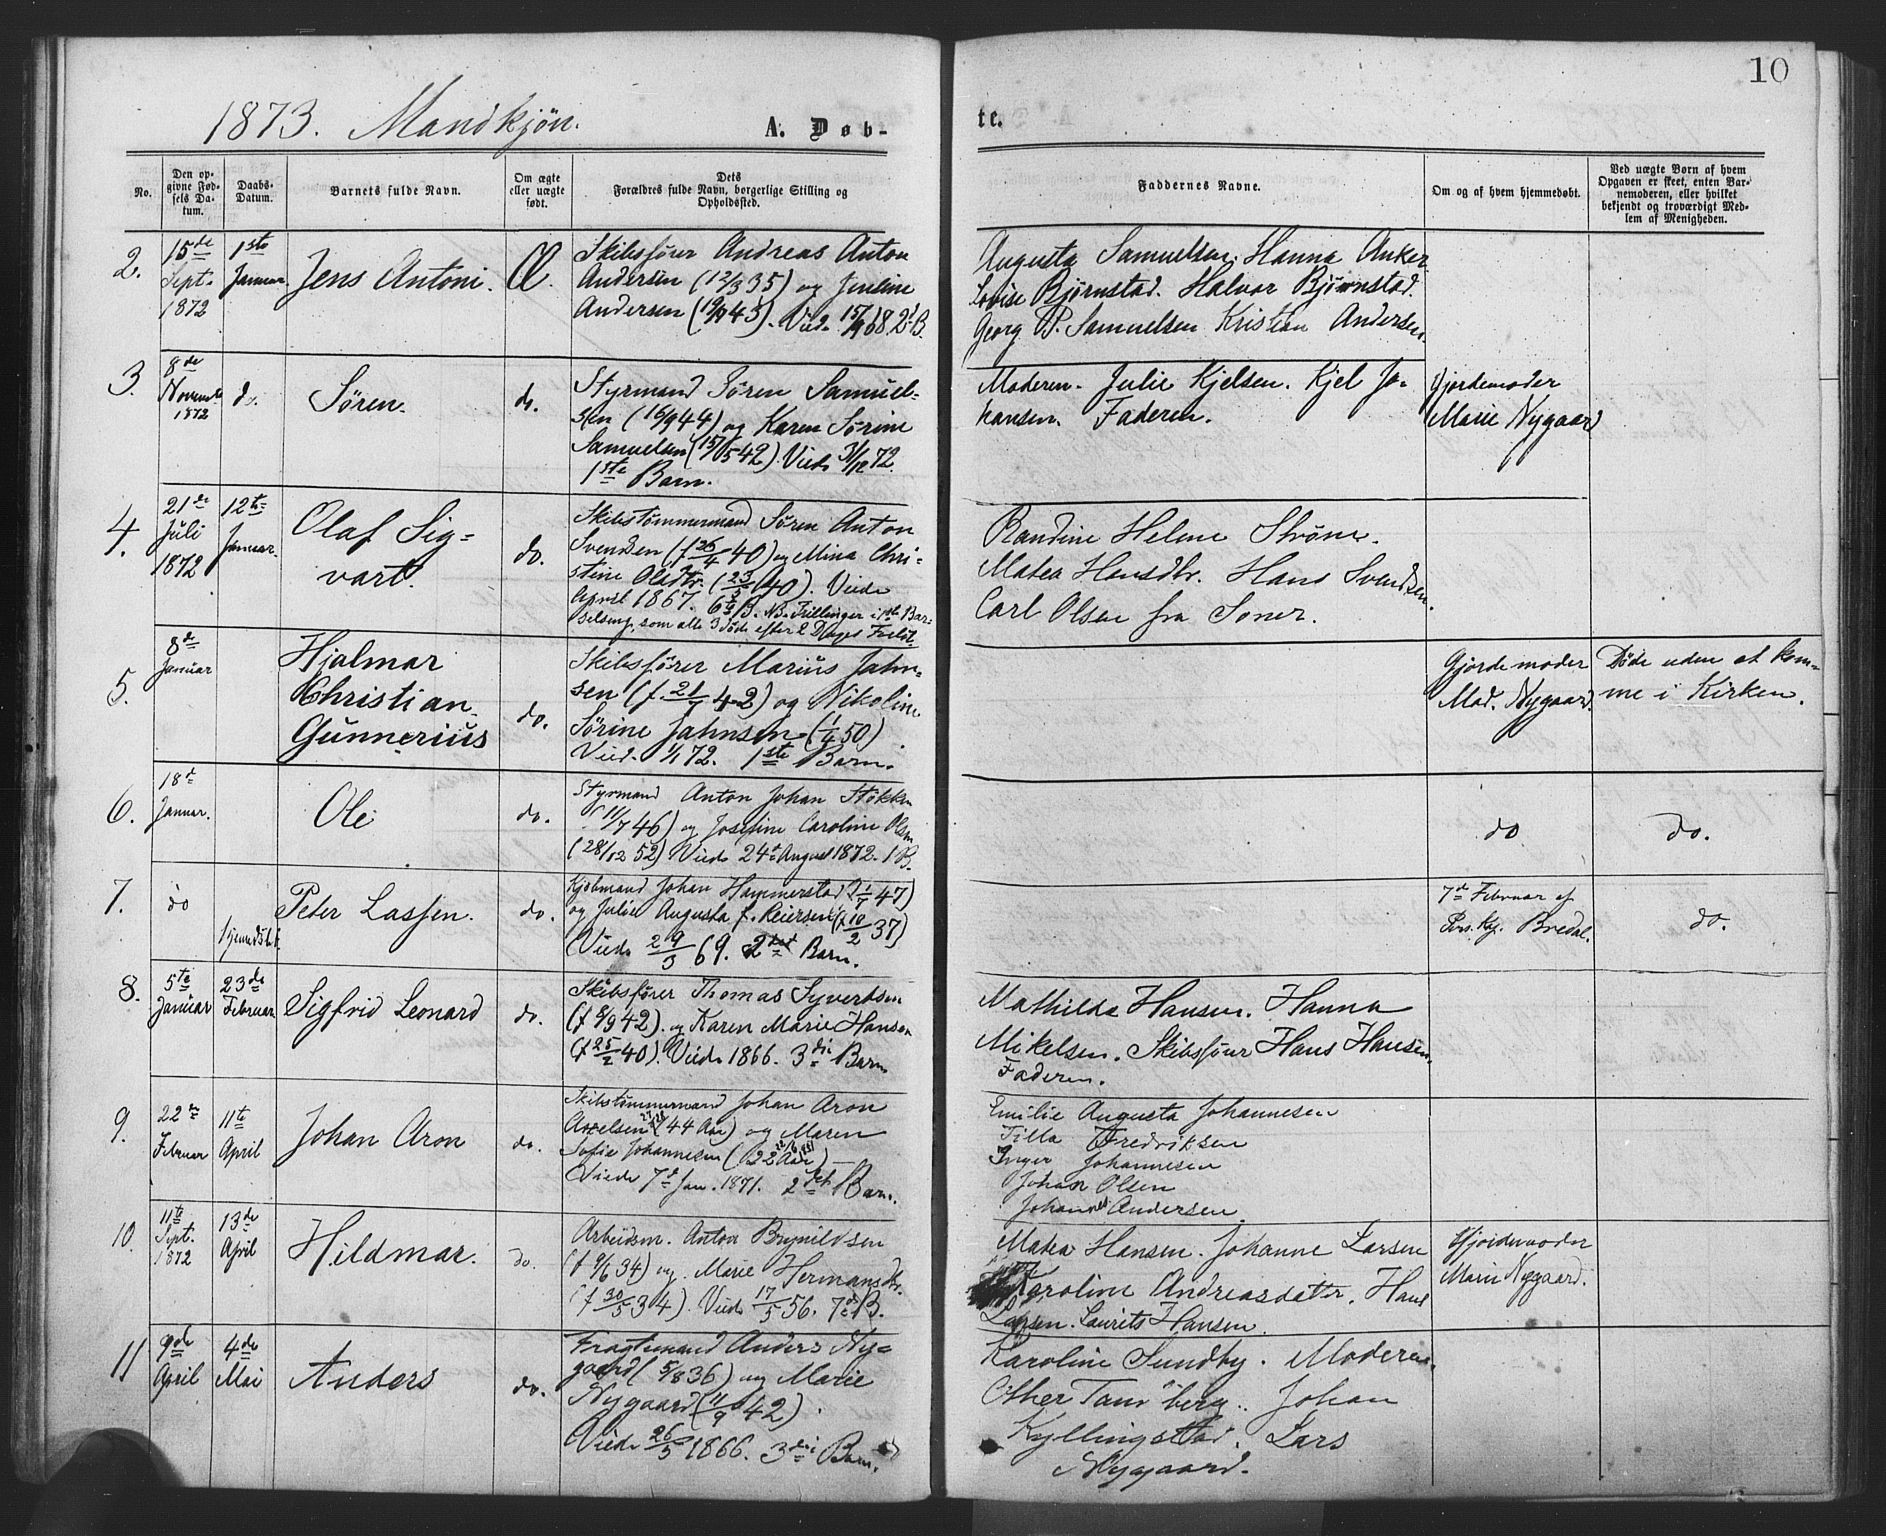 10
1873. Mandkjøn.
A. Døb-
te.
No.
Den op-
givne Fød-
sels Da-
tum.
Daabs-
Datum.
Barnets fulde Navn.
Om ægte
eller uægte
født.
Dets
Forældres fulde Navn, borgerlige Stilling og
Opholdssted.
Faddernes Navne.
Om og af hvem hjemmedøbt.
Ved uægte Børn af hvem
Opgaven er skeet, enten Bar-
nemoderen, eller hvilket
bekjendt og troværdigt Med-
lem af Menigheden.
2.
15de
Sept.
1872
1ste
Januar
Jens Antoni.
Æ.
Skibsfører Andreas Anton
Andersen (12/3 35) og Juline
Andersen (19/9 43). Vied. 15/9 68. 2d B.
Augusta Samuelsen. Hanna Anker
Lovise Bjørnstad. Halvor Bjørnstad.
Georg P. Samuelsen Kristian Andersen.
3.
8de
Novemb.
1872
do.
Søren.
do.
Styrmand Søren Samuel-
sen (16/9 44) og Karen Sørine
Samuelsen (15/5 42). Viede 31/12 72.
1ste Barn.
Moderen. Julie Kjelsen. Kjel Jo-
hansen. Faderen.
Gjordemoder
Marie Nygaard
4.
21de
Juli
1872
12te
Januar.
Olaf Sig-
vart.
do.
Skibstømmermand Søren Anton
Svendsen (f 26/4 40) og Mina Chri-
stine Olsdtr. (23/5 40). Viede
April 1867. 6te B. NB. Trillinger i 1ste Bar-
selseng, som alle 3 døde efter 2 Dages Forløb
Randine Helene Strøm.
Matea Hansdtr. Hans Svendsen.
Carl Olsen fra Soner.
5.
8de
Januar
Hjalmar
Christian
Gunnerius
do.
Skibsfører Marius Jahn-
sen (f. 21/1 42) og Nikoline
Sørine Jahnsen (1/4 50).
Vied. 1/1 72. 1ste Barn.
Gjordemoder
Mad. Nygaard.
Døde uden at kom-
me i Kirken.
6.
18de
Januar.
Ole
do.
Styrmand Anton Johan Stokken
(11/7 46) og Josefine Caroline Olsen
(28/12 52) Viede 24de August 1872. 1 B.
do
do.
7.
do
hjemmedøbt.
Peter Lassen.
do.
Kjøbmand Johan Hammerstad (1/7 47)
og Julie Augusta f. Reiersen (f 10/2 37)
Viede 29/3 69. 2det Barn.
7de Februar af
Pers. Kp. Bredal.
do.
8.
5te
Januar
23de
Februar
Sigfrid Leonard
do.
Skibsfører Thomas Syvertsen
(f 8/9 42). og Karen Marie Hansen
(f 25/2 40). Viede 1866. 3die Barn
Mathilda Hansen. Hanna
Mikelsen. Skibsfører Hans Hansen.
Faderen.
9.
22de
Februar
11te
April
Johan Aron
do.
Skibstømmermand Johan Aron
Axelsen (44 Aar) og Maren
Sofie Johannesen (22 Aar)
Viede 7de Jan. 1871. 2det Barn.
Emilie Augusta Johannesen
Tilla Fredriksen
Inger Johannesen
Johan Olsen
Johannes Andersen
10.
11te
Sept.
1872
13de
April
Hildmar.
do.
Arbeidsm. Anton Brynildsen
(f 9/6 34) og Marie Hermansdtr.
(f 30/5 34). Viede 17/5 56. 7de B.
Matea Hansen. Johanne Larsen
Karoline Andreasdatter. Hans
Larsen. Laurits Hansen.
Gjordemoder
Marie Nygaard.
11
9de
April
4de
Mai
Anders
do.
Fragtemand Anders Ny-
gaard (5/8 36) og Marie
Nygaard (11/9 42).
Viede 26/5 1866. 3die Barn.
Karoline Sundby. Moderen.
Other Tandberg. Johan
Kyllingstad. Lars
Nygaard.